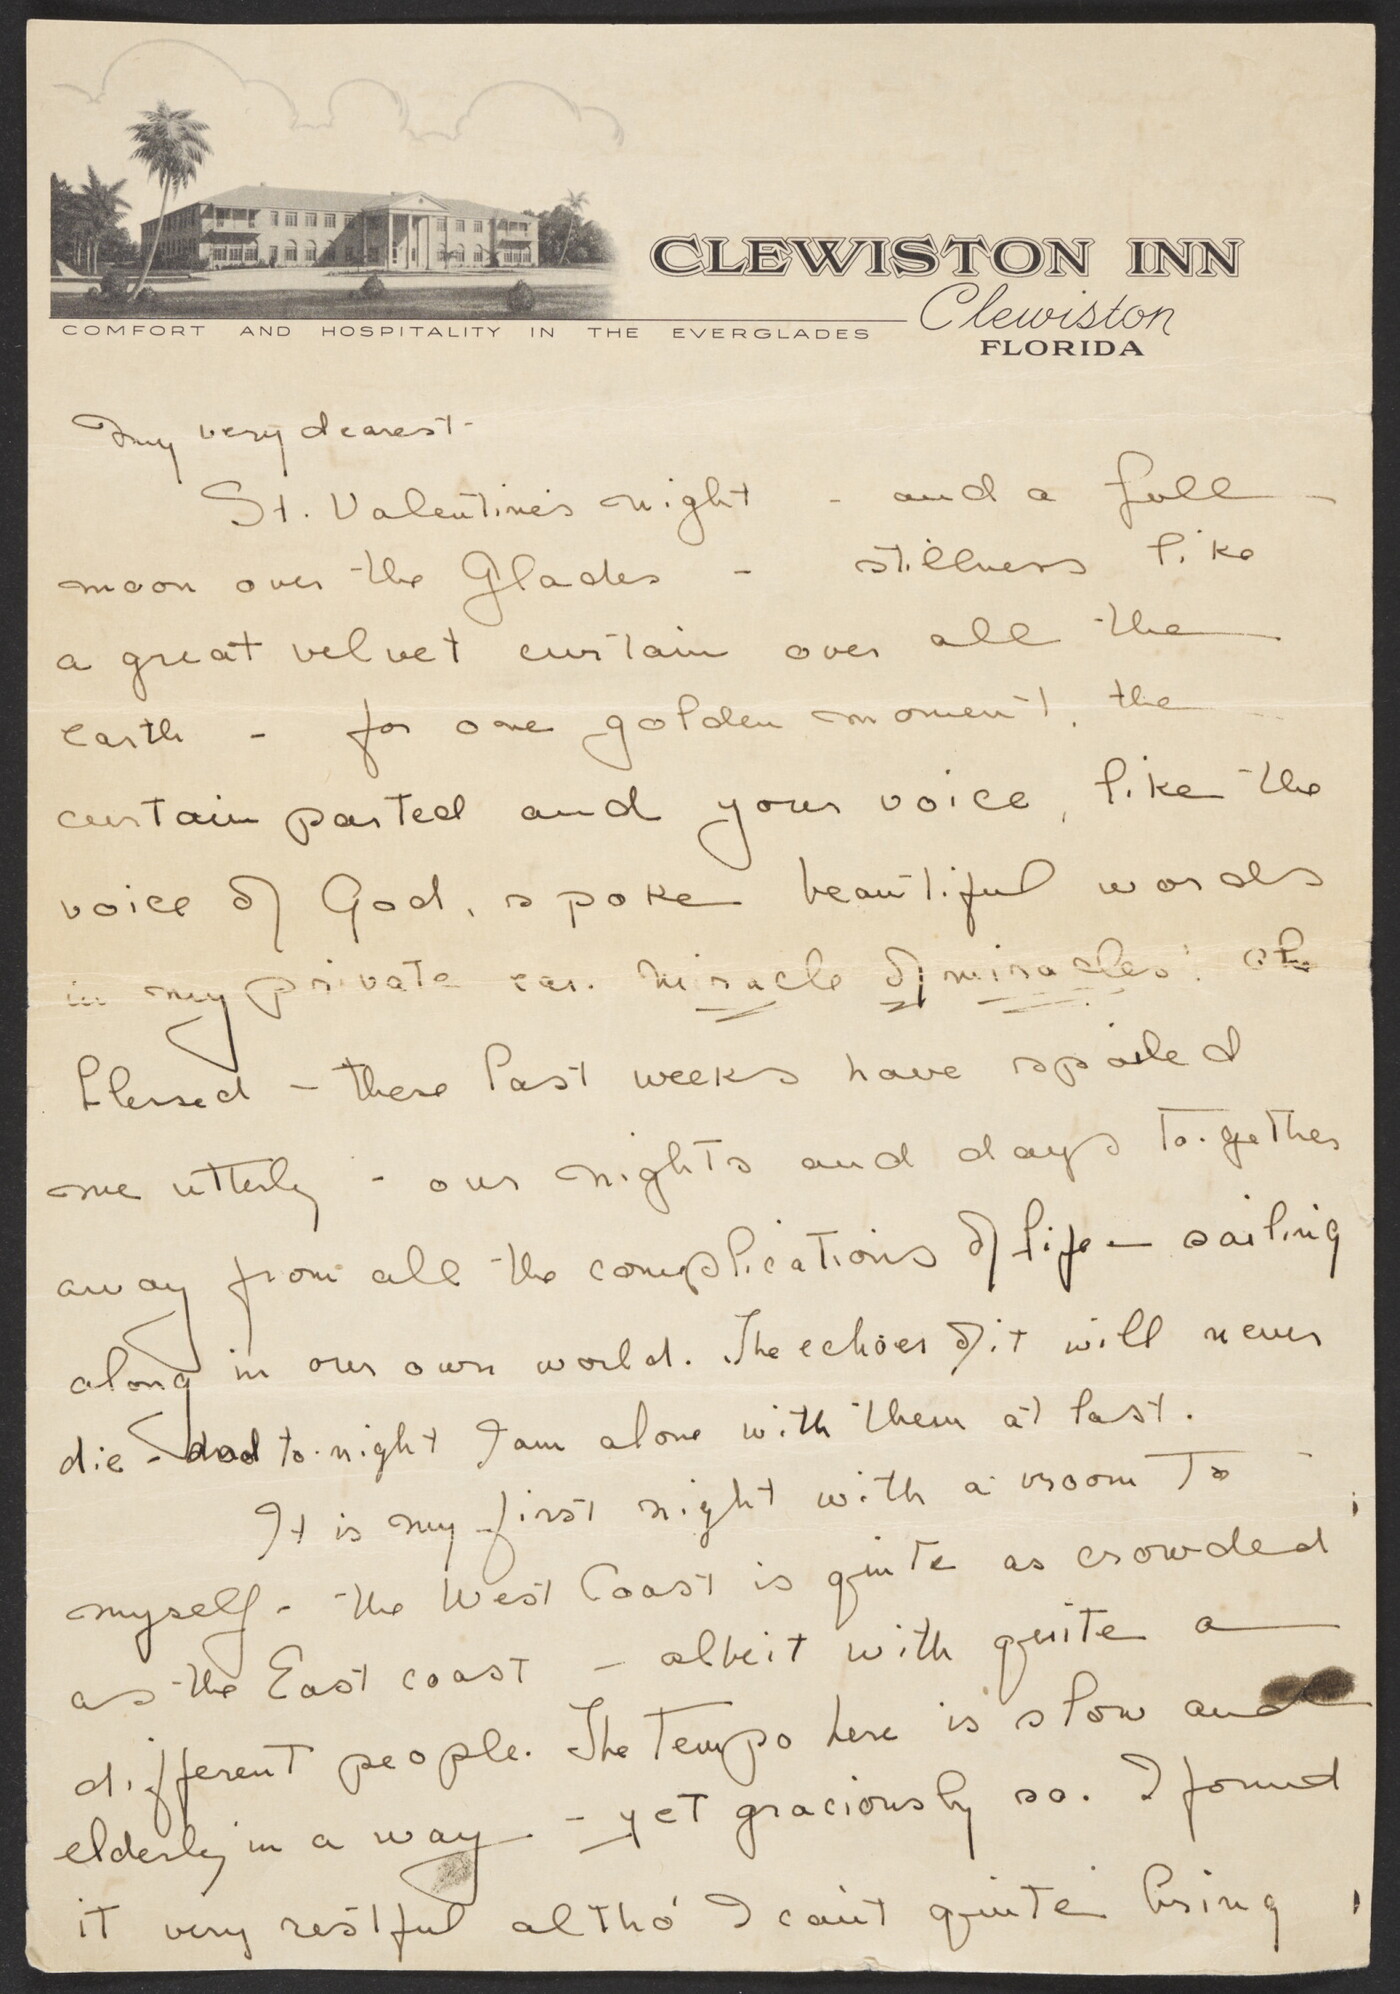 CLEWISTON INN
Clewiston
FLORIDA
COMFORT AND HOSPITALITY IN THE EVERGLADES
My very dearest-
St. Valentine's night - and a full -
moon over the Glades - stillness like
a great velvet curtain over all the
earth - for one golden moment, the
curtain parted and your voice, like the
voice of God, spoke beautiful words
in my private ear. Miracle of miracles! Oh
blessed - these last weeks have spoiled
me utterly - our nights and days to-gether
away from all the complications of life - sailing
along in our own world. The echoes of it will never
die - and to-night I am alone with them at last.
It is my first night with a room to
myself - the West Coast is quite as crowded
as the East coast - albeit with quite a
different people. The tempo here is slow and
elderly in a way - yet graciously so. I found
it very restful altho' I can't quite bring